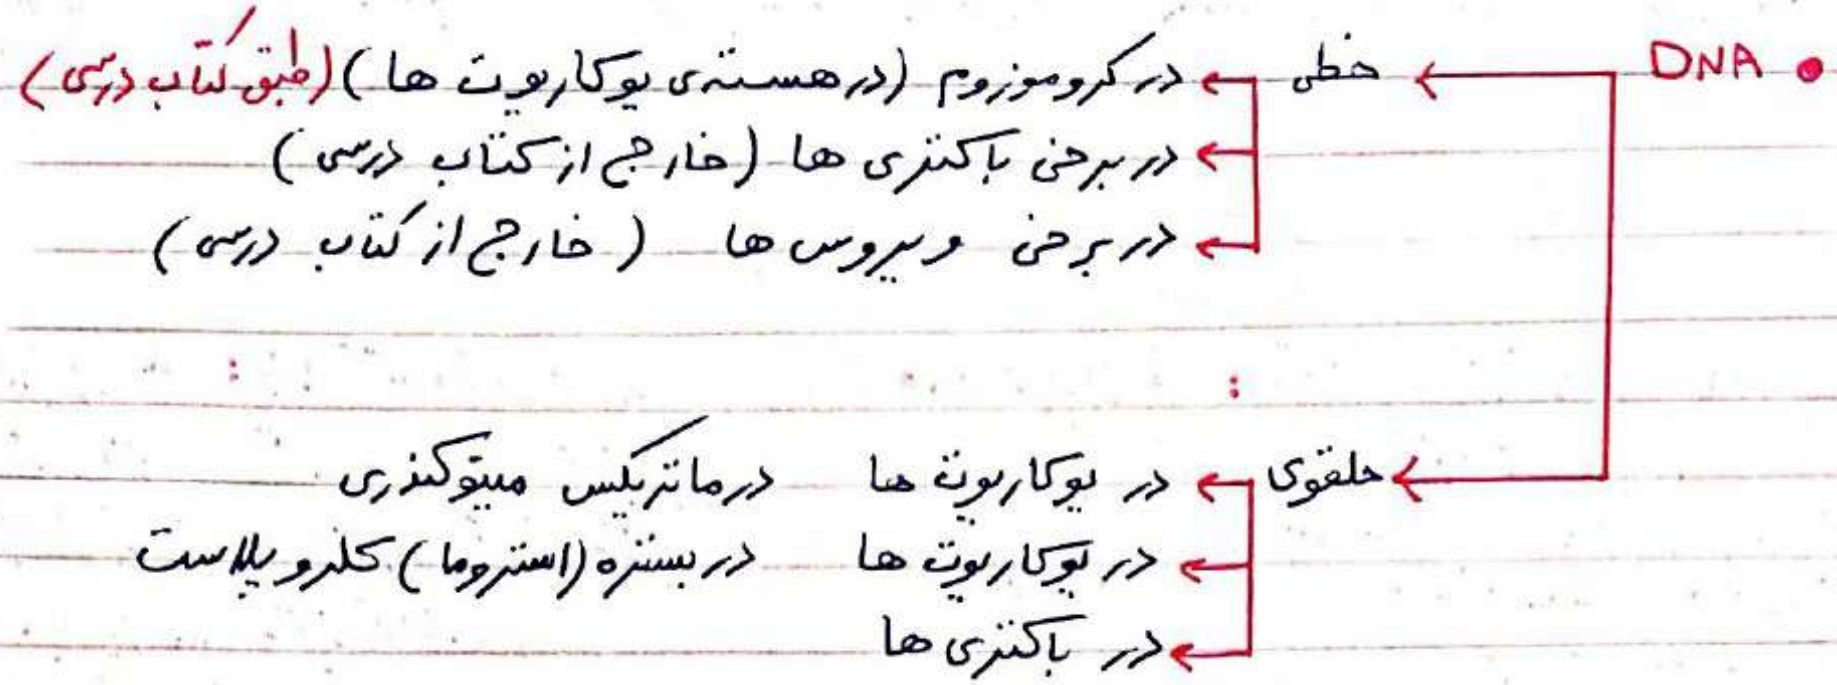 • DNA خطی در کروموزوم (در هسته‌ی یوکاریوت ها) (طبق کتاب درسی)
در برخی باکتری ها (خارج از کتاب درسی)
در برخی ویروس ها (خارج از کتاب درسی)
: :
حلقوی در یوکاریوت ها در ماتریکس میتوکندری
در یوکاریوت ها در بستره (استروما) کلروپلاست
در باکتری ها